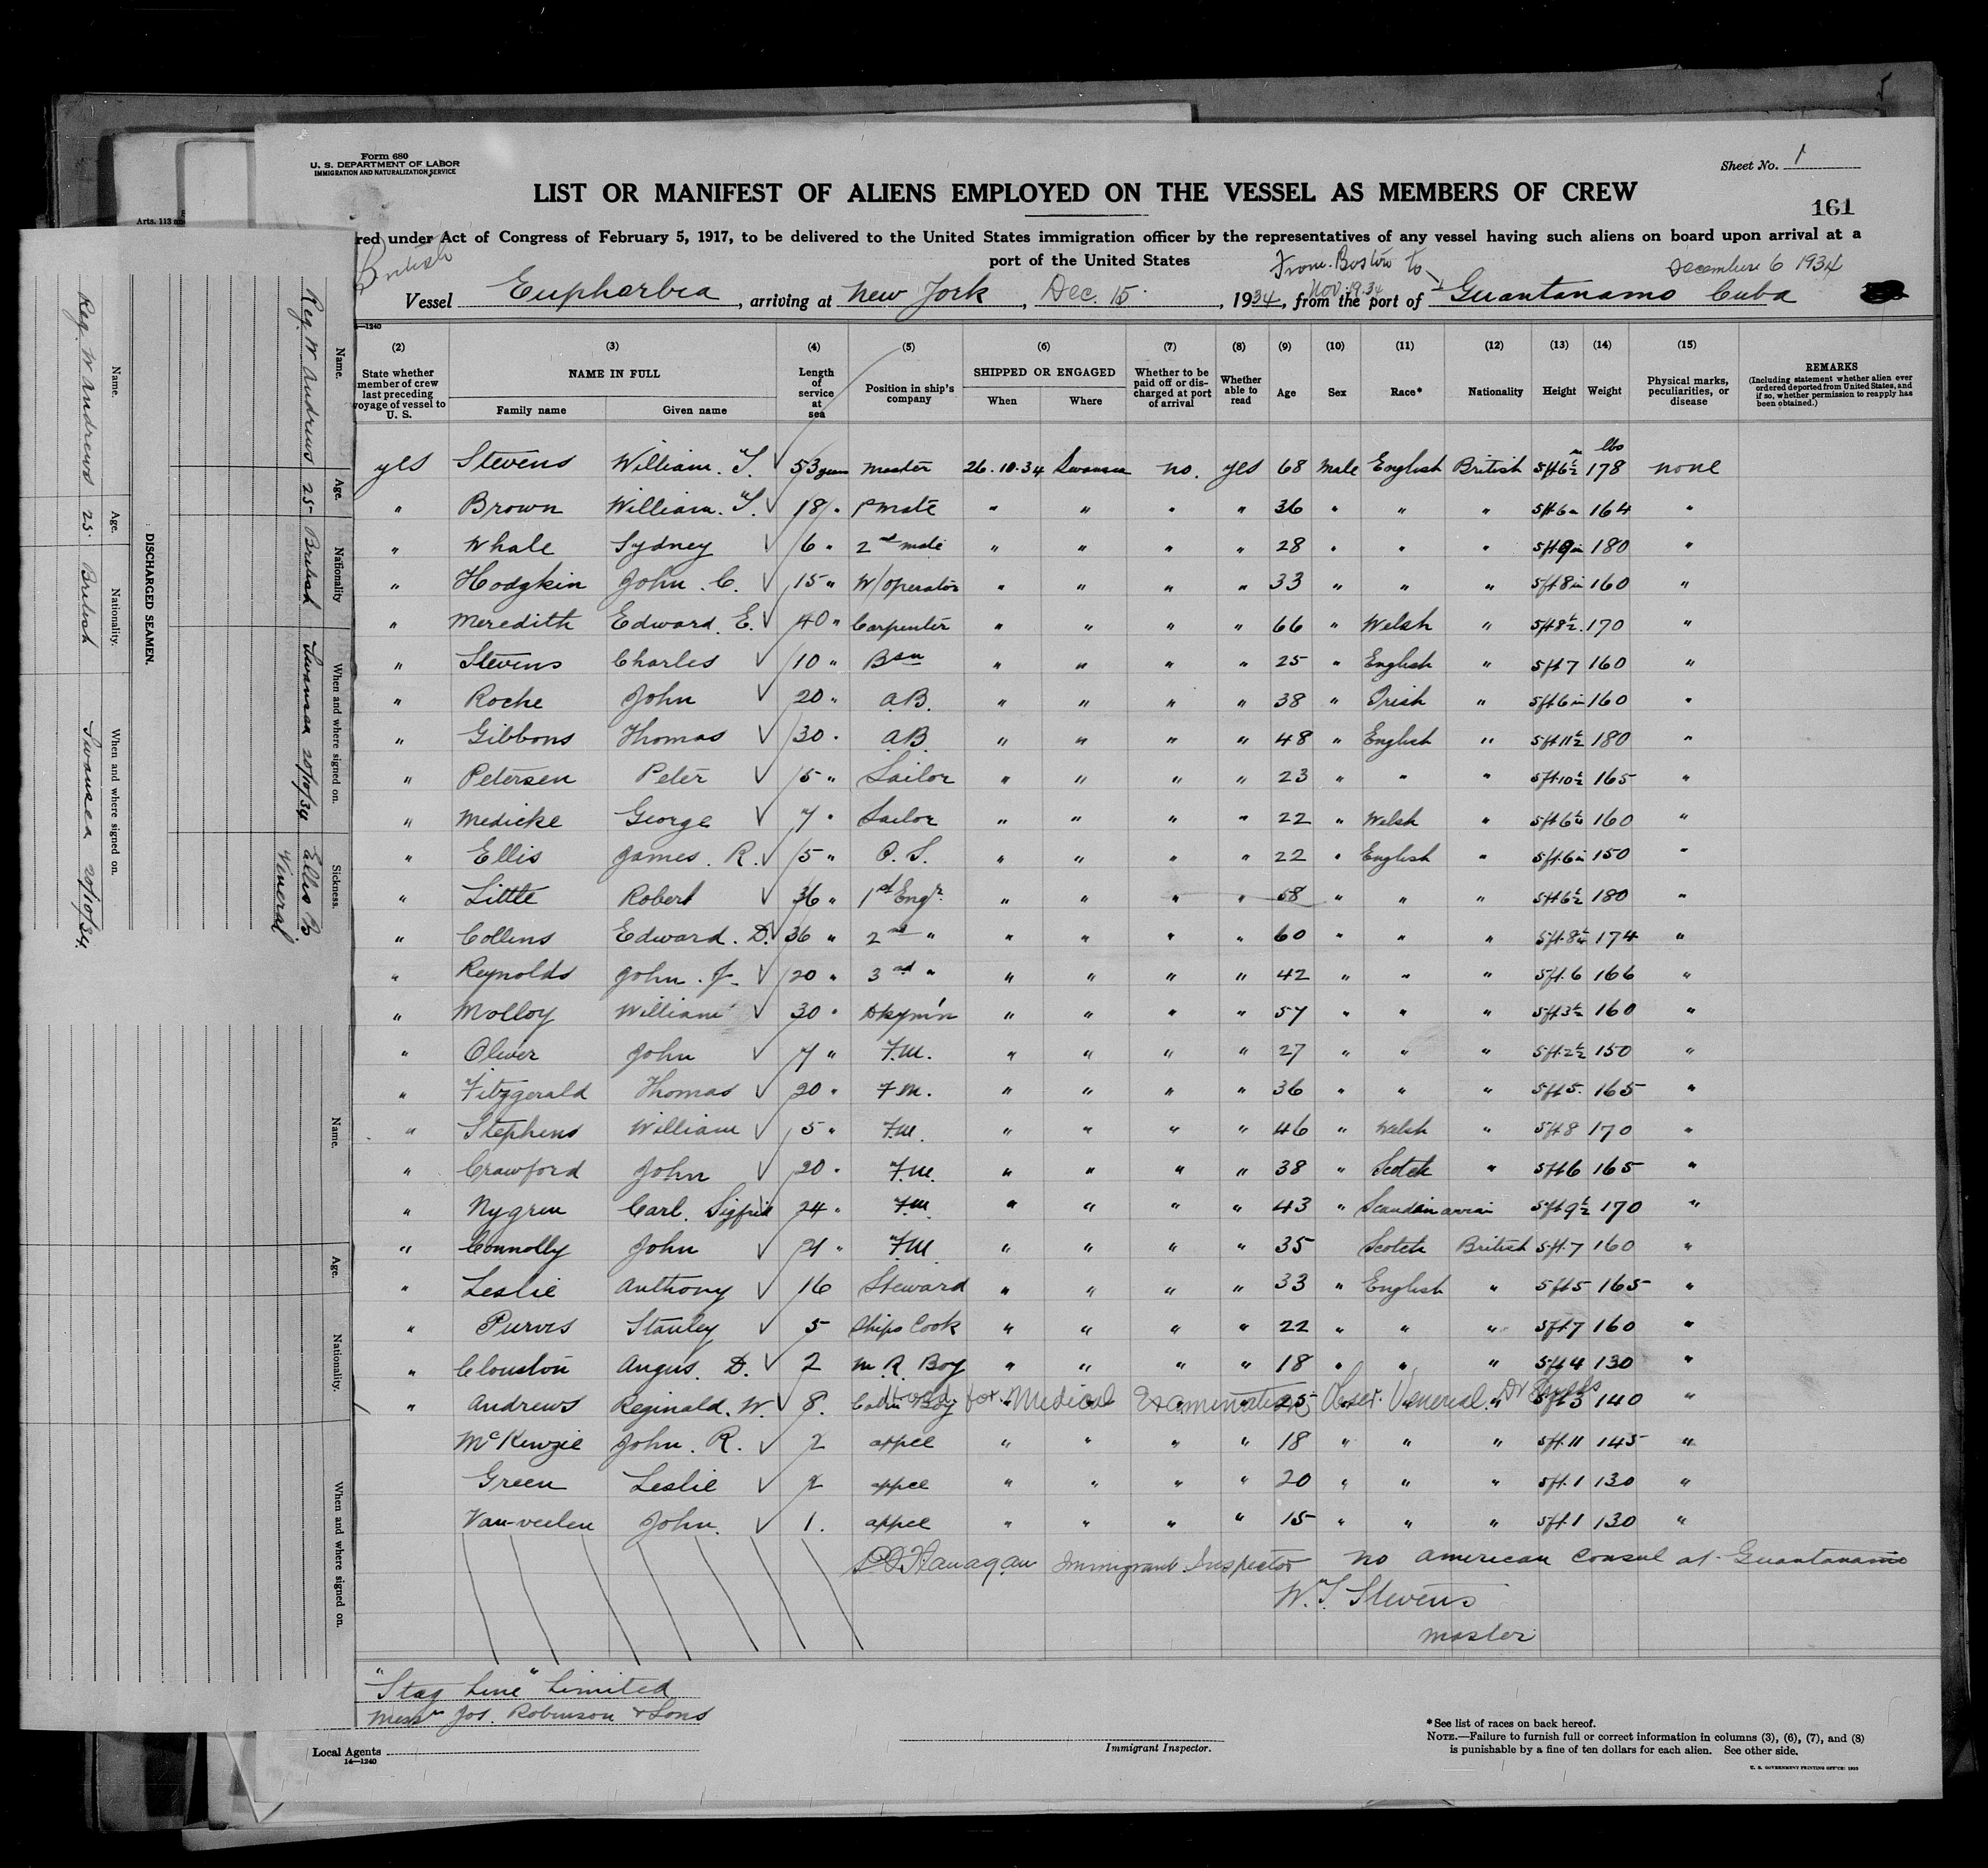 Form 680
U. S. DEPARTMENT OF LABOR
IMMIGRATION AND NATURALIZATION SERVICE
Sheet No. 1
LIST OR MANIFEST OF ALIENS EMPLOYED ON THE VESSEL AS MEMBERS OF CREW
161
red under Act of Congress of February 5, 1917, to be delivered to the United States immigration officer by the representatives of any vessel having such aliens on board upon arrival at a
port of the United States
British
From Boston to
Nov. 19. 34
December 6 1934
Vessel Eupharbia, arriving at New York, Dec. 15, 1934, from the port of Guantanamo Cuba
(2) (3) (4) (5) (6) (7) (8) (9) (10) (11) (12) (13) (14) (15)
State whether member of crew last preceding voyage of vessel to U. S. NAME IN FULL Family name Given name Length of service at sea Position in ship's company SHIPPED OR ENGAGED When Where Whether to be paid off or discharged at port of arrival Whether able to read Age Sex Race* Nationality Height Weight Physical marks, peculiarities, or disease REMARKS (Including statement whether alien ever ordered deported from United States, and if so, whether permission to reapply has been obtained.)
yes Stevens William. T. 53 years Master 26.10.34 Swansea no. yes 68 Male English British 5ft 6½ in 178 lbs none
" Brown William. T. 18 " 1st Mate " " " " 36 " " " 5ft 6in 164 "
" Whale Sydney 6 " 2nd Mate " " " " 28 " " " 5ft 9in 180 "
" Hodgkin John. C. 15 " W/operator " " " " 33 " " " 5ft 8in 160 "
" Meredith Edward. E. 40 " Carpenter " " " " 66 " Welsh " 5ft 8½ 170 "
" Stevens Charles 10 " Bsn " " " " 25 " English " 5ft 7 160 "
" Roche John 20 " A.B. " " " " 38 " Irish " 5ft 6in 160 "
" Gibbons Thomas 30 " A.B. " " " " 48 " English " 5ft 11½ 180 "
" Petersen Peter 5 " Sailor " " " " 23 " " " 5ft 10½ 165 "
" Medicke George 7 " Sailor " " " " 22 " Welsh " 5ft 6¼ 160 "
" Ellis James. R. 5 " O. S. " " " " 22 " English " 5ft 6in 150 "
" Little Robert 36 " 1st Engr. " " " " 58 " " " 5ft 6½ 180 "
" Collins Edward. D. 36 " 2nd " " " " " 60 " " " 5ft 8¼ 174 "
" Reynolds John. J. 20 " 3rd " " " " " 42 " " " 5ft 6 166 "
" Molloy William 30 " Dkym'n " " " " 57 " " " 5ft 3½ 160 "
" Oliver John 7 " F.M. " " " " 27 " " " 5ft 2½ 150 "
" Fitzgerald Thomas 20 " F.M. " " " " 36 " " " 5ft 5 165 "
" Stephens William 5 " F.M. " " " " 46 " Welsh " 5ft 8 170 "
" Crawford John 20 " F.M. " " " " 38 " Scotch " 5ft 6 165 "
" Nygren Carl. Sigfrid 24 " F.M. " " " " 43 " Scandinavian 5ft 9½ 170 "
" Connolly John 21 " F.M " " " " 35 Scotch British 5ft 7 160 "
" Leslie Anthony 16 Steward " " " " 33 " English " 5ft 5 165 "
" Purves Stanley 5 Ships Cook " " " " 22 " " " 5ft 7 160 "
" Clouston Angus. D. 2 M. R. Boy " " " " 18 " " " 5ft 4 130 "
" Andrews Reginald. W. 8. Cabin Boy " " " " 25 " " " 5ft 3 140 "
for Medical Examination Obser. Venerial.
McKenzie John. R. 2 appce " " " " 18 " " " 5ft 11 145 "
Green Leslie 2 appce " " " " 20 " " " 5ft 1 130 "
Van-veelen John. 1. appce " " " " 15 " " " 5ft 1 130 "
Flanagan Immigrant Inspector No American Consul at Guantanamo
W. T. Stevens
Master
"Stag Line" Limited
Messrs Jos. Robinson & Sons
Local Agents
14—1240
Immigrant Inspector.
*See list of races on back hereof.
NOTE.—Failure to furnish full or correct information in columns (3), (6), (7), and (8)
is punishable by a fine of ten dollars for each alien. See other side.
U. S. GOVERNMENT PRINTING OFFICE: 1933
DISCHARGED SEAMEN.
Name. Age. Nationality. When and where signed on.
Reg. W. Andrews 25. British Swansea 20/10/34.
Name. Age. Nationality When and where signed on. Sickness.
Reg. W Andrews 25 British Swansea 20/10/34 Ellis
Veneral
Name. Age. Nationality. When and where signed on.
Arts. 113 and